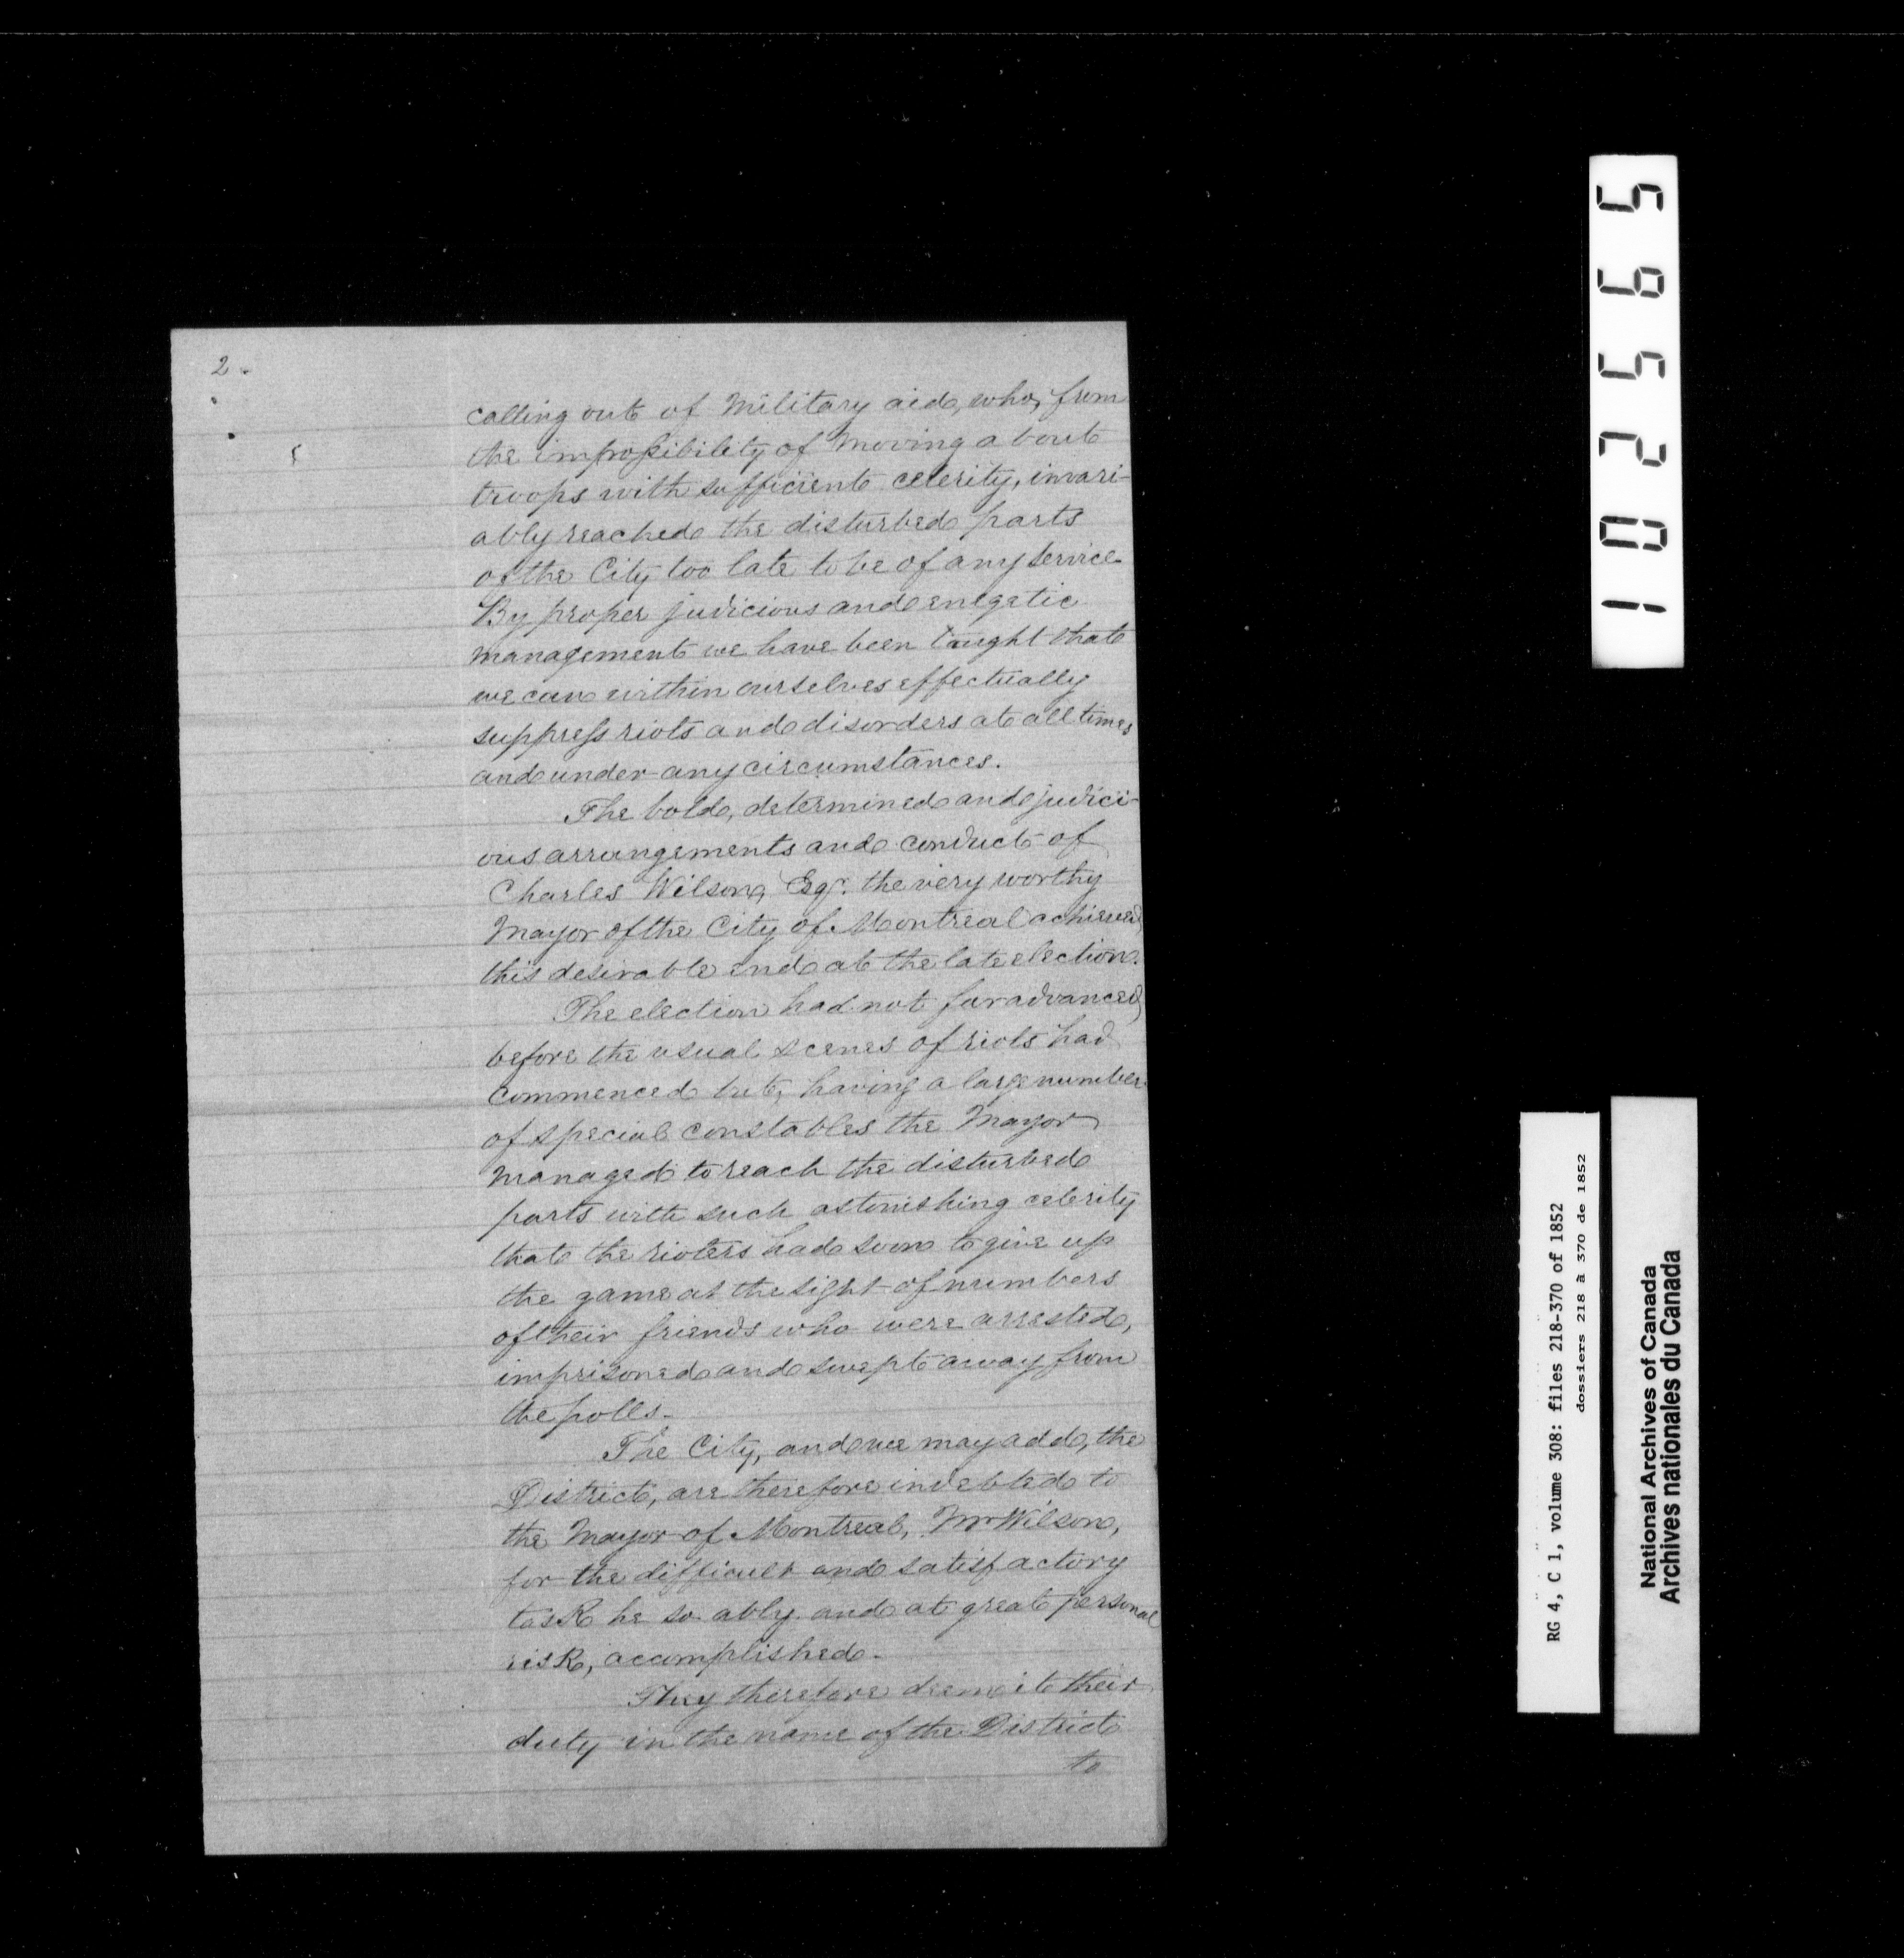 2.
calling out of Military aid, who, from
the impossibility of moving about
troops with sufficient celerity, invari-
ably reached the disturbed parts
of the City too late to be of any service
By proper judicious and enegetic
management we have been taught that
we can within ourselves effectually
suppress riots and disorders at all times
and under any circumstances.
The bold, determined and judici-
ous arrangements and conduct of
Charles Wilson, Esqr. the very worthy
Mayor of the City of Montreal achieved
this desirable end at the late election.
The election had not far advanced
before the usual scenes of riots had
commenced but, having a large number
of special constables the Mayor
managed to reach the disturbed
parts with such astonishing celerity
that the rioters had soon to give up
the game at the sight of numbers
of their friends who were arrested,
imprisoned and swept away from
the polls.
The City, and we may add, the
District, are therefore indebted to
the Mayor of Montreal, Mr Wilson,
for the difficult and satisfactory
task he so ably and at great personal
risk, acomplished.
They therefore deem it their
duty in the name of the District
to
102565
RG 4, C 1, volume 308: files 218-370 of 1852
dossiers 218 à 370 de 1852
National Archives of Canada
Archives nationales du Canada